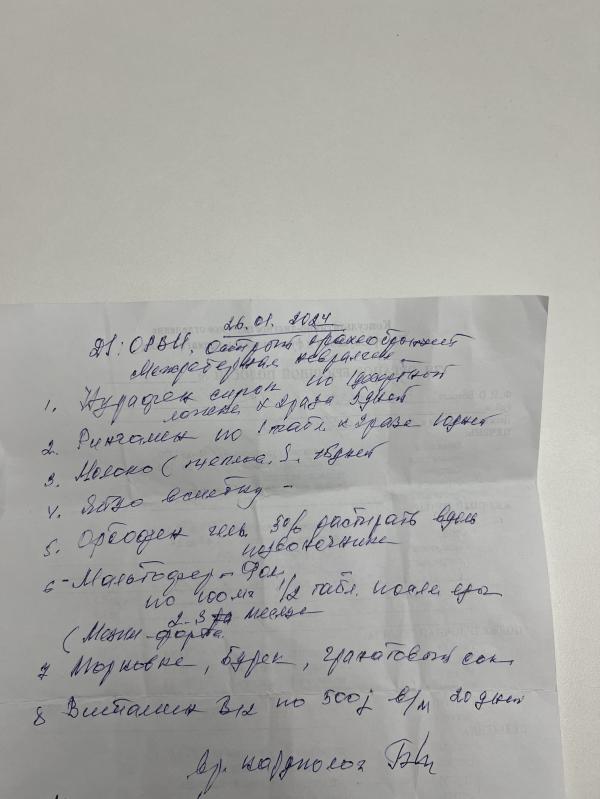 26.01.2024
DS: ОРВИ. Острый трахеобронхит
Межреберная невралгия.
1. Нурофен сироп по 1 десертной
ложке х 2 раза 5 дней
2. по 1 табл х 2 раза 10 дней
3. Молоко (теплое дней
4. Яйцо всмятку –
5. Ортофен гель 5% растирать вдоль
позвоночника
6 - Мальтофер - Фол
по 100 мг 1/2 табл. после еды
2-3 месяца
( - форте
7 Морковь, бурак, гранатовый сок
8 Витамин B12 по 500γ в/м 20 дней
вр. кардиолог